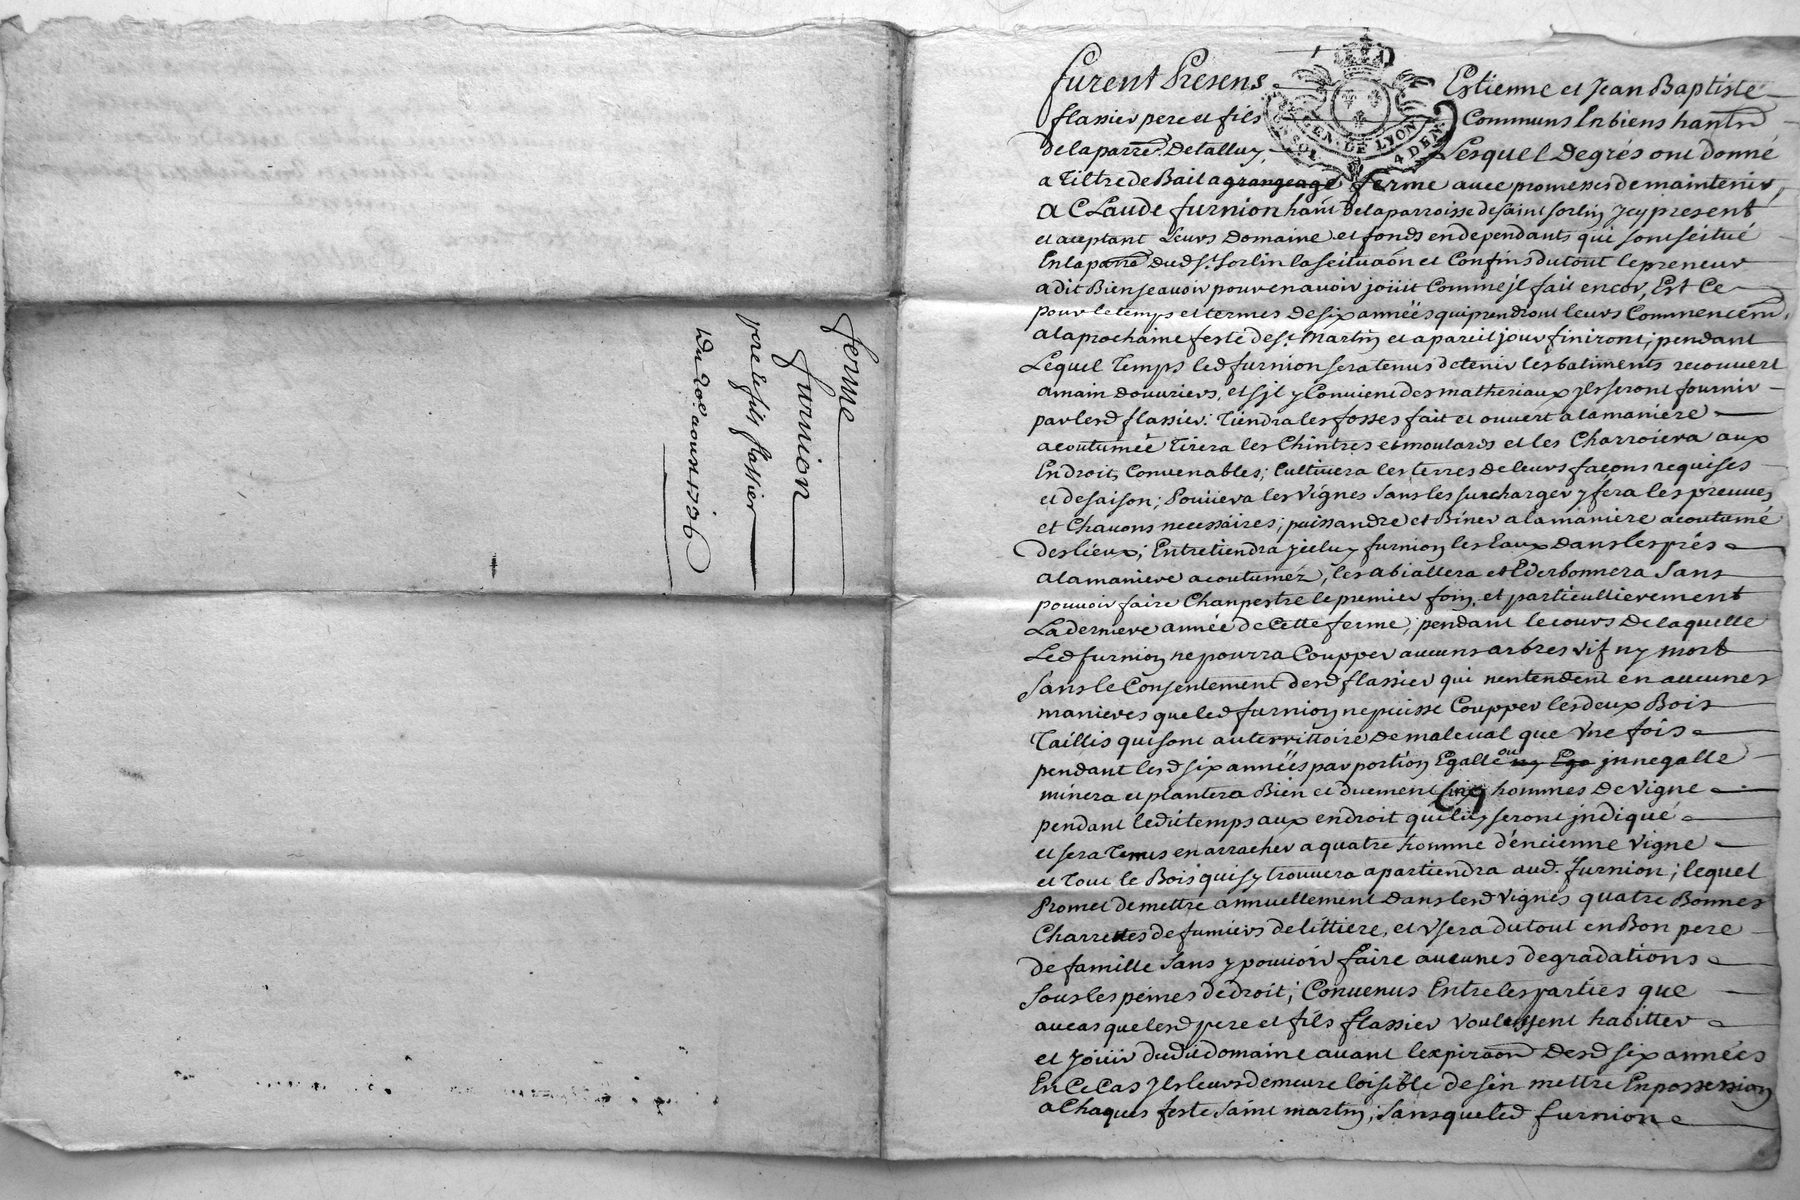 ferme
furnion
pere et fils flassier
du 20e. aoust 1736
furent Presens Estienne et Jean Baptiste
flassier pere et fils Communs En biens hantd
de la parre. De talluy, Lesquel De grés ont donné
GEN. DE LYON
UN SOL 4 DEN.
a Tiltre de Bail a grangeage ferme avec promesses de maintenir,
a CLaude furnion hant De la parroisse de saint sorlin Jcy present
et aceptant Leurs Domaine et fonds en dependants qui sont seitué
En la parre Dud St. Sorlin la seituaon et Confins du tout le preneur
a dit Bien sçavoir pour en avoir joüit Comme jl fait encor, Est Ce
pour le temps et termes De six années qui prendront leurs Commencemt.
a la prochaine feste de St. Martin et a pareil jour finiront; pendant
Lequel Temps led furnion sera tenus de tenir les batiments recouvert
a main d'ouvriers, et s'jl y Convient des matheriaux jls seront fournir
par lesd flassier. Tiendra les fosses fait et ouvert a la maniere
acoutumée tirera les Chintres et moulards et les Charroiera aux
Endroits Convenables; Cultivera les terres de leurs façons requises
et de saison; Pouiiera les vignes sans les surcharger y fera les preuves
et Chavons necessaires; puissandre et Biner a la maniere acoutumé
des lieux; Entretiendra jceluy furnion les Eaux Dans les prés
a la maniere acoutumez, les abiallera et Ederbonnera Sans
pouvoir faire Chanpestre le premier foin, et particullierement
La derniere année de Cette ferme; pendant le cours De laquelle
Led furnion ne pourra Coupper aucuns arbres vif ny mort
Sans le Consentement desd flassier qui nentendent en aucunes
manieres que led furnion ne puisse Coupper les deux Bois
Taillis qui sont au territtoire De maleval que Vne fois
pendant lesd six années par portion Egalle ou ny Ega jnnegalle
minera et plantera Bien et duement Cinq hommes De vigne
pendant ledit temps aux endroit qui luy seront jndiqué
et sera Tenus en arracher a quatre homme d'encienne vigne
et Tout le Bois qui s'y trouvera apartiendra aud. furnion; lequel
Promet de mettre annuellement Dans lesd vignes quatre Bonnes
Charrettes de fumiers de littiere, et Vsera du tout en Bon pere
de famille Sans y pouvoir faire aucunes degradations
sous les peines de droit; Convenus Entre les parties que
au cas que lesd pere et fils flassier voulussent habitter
et Joüir dudit domaine avant lexpiraon Desd six années
En Ce Cas Jls leurs demeure loisible de s'en mettre En possession
a Chaques feste saint martin; sans que led furnion